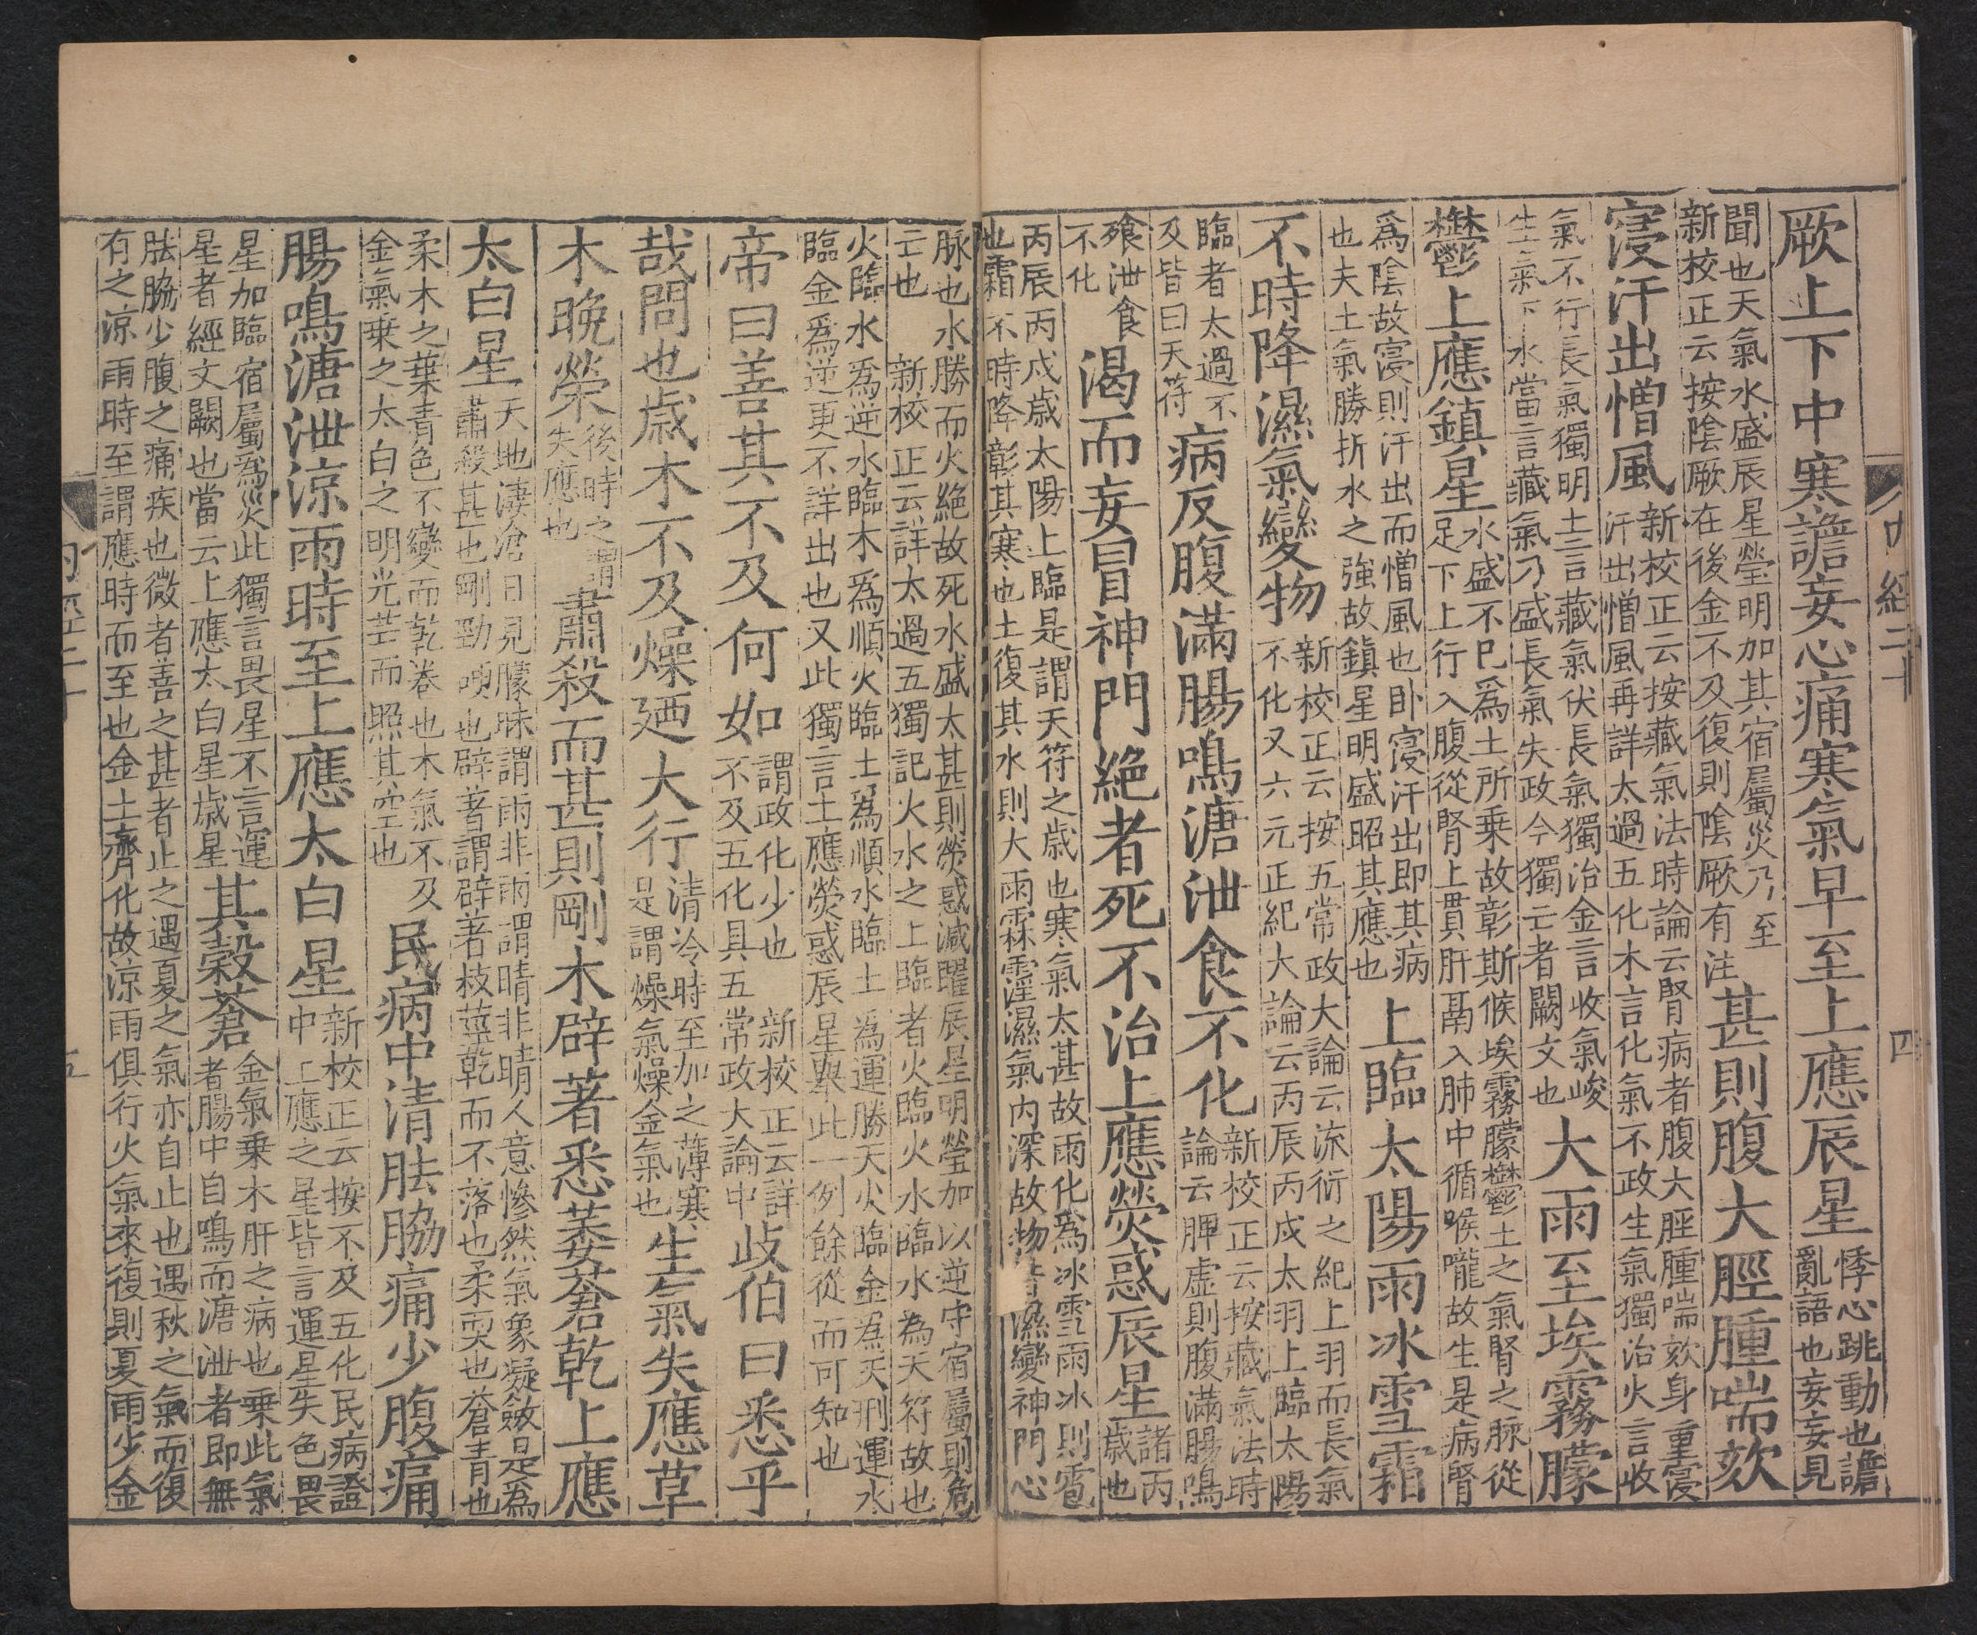 厥上下中寒譫妄心痛寒氣早至上應辰星悸心跳動也譫亂語也妄妄見
聞也天氣水盛辰星瑩明加其宿屬災乃至新校正云按陰厥在後金不及復則陰厥有注甚則腹大脛腫喘欬
寑汗出憎風新校正云按藏氣法時論云腎病者腹大脛腫喘欬身重寑汗出憎風再詳太過五化木言化氣不政生氣獨治火言收
氣不行長氣獨明土言藏氣伏長氣獨治金言收氣峻生氣下水當言藏氣乃盛長氣失政今獨亡者闕文也大雨至埃霧朦
鬱上應鎮星水盛不已爲土所乗故彰斯候埃霧朦鬱土之氣腎之脉從足下上行入腹從腎上貫肝鬲入肺中循喉嚨故生是病腎
爲陰故寑則汗出而憎風也卧寑汗出即其病也夫土氣勝折水之強故鎮星明盛昭其應也上臨太陽雨冰雪霜
不時降濕氣變物新校正云按五常政大論云流衍之紀上羽而長氣不化又六元正紀大論云丙辰丙戍太羽上臨太陽
臨者太過不及皆曰天符病反腹滿腸鳴溏泄食不化新校正云按藏氣法時論云脾虚則腹滿腸鳴
飱泄食不化渴而妄冒神門絶者死不治上應熒惑辰星諸丙歳也
丙辰丙戍歳太陽上臨是謂天符之歳也寒氣太甚故雨化為冰雪雨冰則雹也霜不時降彰其寒也土復其水則大雨霖霪濕氣内深故物濕變神門心
脉也水勝而火絶故死水盛太甚則熒惑減曜辰星明瑩加以逆守宿屬則危亡也新校正云詳太過五獨記火水之上臨者火臨火水臨水為天符故也
火臨水爲逆水臨木爲順火臨土爲順水臨土爲運勝天火臨金爲天刑運水臨金爲逆更不詳出也又此獨言土應熒惑辰星舉此一例餘從而可知也
帝曰善其不及何如謂政化少也新校正云詳不及五化具五常政大論中歧伯曰悉乎
哉問也歳木不及燥廼大行清冷時至加之薄寒是謂燥氣燥金氣也生氣失應草
木晚榮後時之謂失應也肅殺而甚則剛木辟著悉萎蒼乾上應
太白星天地淒滄日見朦昧謂雨非雨謂晴非晴人意慘然氣象凝斂是為肅殺甚也剛勁䩕也辟著謂辟著枝莖乾而不落也柔耎也蒼青也
柔木之葉青色不變而乾卷也木氣不及金氣乗之太白之明光芒而照其空也民病中清胠脇痛少腹痛
腸鳴溏泄凉雨時至上應太白星新校正云按不及五化民病證中上應之星皆言運星失色畏
星加臨宿屬爲災此獨言畏星不言運星者經文闕也當云上應太白星歳星其穀蒼金氣乗木肝之病也乗此氣者腸中自鳴而溏泄者即無
胠脇少腹之痛疾也微者善之甚者止之遇夏之氣亦自止也遇秋之氣而復有之凉雨時至謂應時而至也金土齊化故凉雨俱行火氣來復則夏雨少金
内經二十
四
内經二十
五